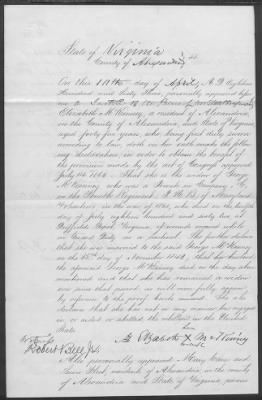 State of Virginia
County of Alexandria SS
On this day of April A.D. eighteen
hundred and sixty three, personally appeared before
me a Justice of the Peace
Elizabeth McKinney, a resident of Alexandria,
in the County of Alexandria, and State of Virginia
aged forty five years, who being first duly sworn
according to law, doth on her oath make the follow
ing declaration in order to obtain the benefit of
the provision made by the act of Congress approved
July 14, 1862. That she is the widow of George
McKinney who was a Private in Company
in the Regiment of Maryland
Volunteers in the war of 1861, who died on the
day of July eighteen hundred and sixty two at
Virginia, of wounds received while
on Guard duty as a Sentinel. She further declares
that she was married to the said George McKinney
on the day of November 1842, that her husband
the aforesaid George McKinney died on the day above
mentioned and that she has remained a widow
ever since that period, as will more fully appear
by reference to the proof hereto annexed. She also
declares that she has not in any manner been engag
ed in, or aided or abetted the rebellion in the United
States
her
Witness Elizabeth X McKinney
Robert Bell Jr. mark
Also personally appeared Mary and
residents of Alexandria in the county
of Alexandria and State of Virginia, persons